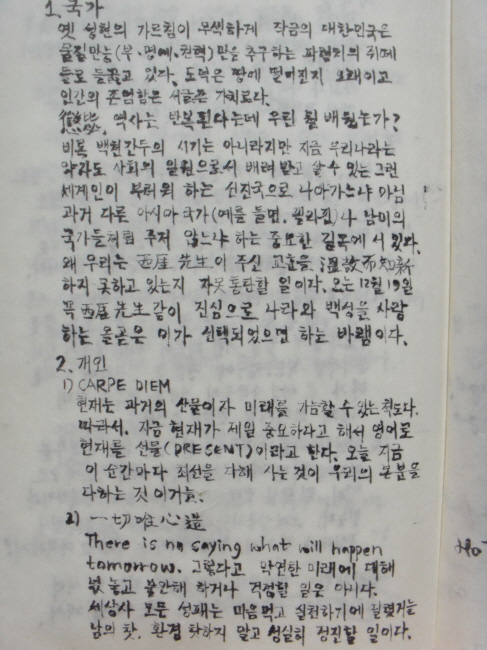 1. 국가
옛 성현의 가르침이 무색하게 작금의 대한민국은
물질만능(부·명예·권력)만을 추구하는 파렴치의 쥐떼
들로 들끓고 있다. 도덕은 땅에 떨어진지 오래이고
인간의 존엄함은 서글픈 가치로다.
역사는 반복된다는데 우린 뭘 배웠는가?
비록 백척간두의 시기는 아니라지만 지금 우리나라는
약자도 사회의 일원으로서 배려받고 살 수 있는 그런
세계인이 부러워 하는 선진국으로 나아가느냐 아님
과거 다른 아시아 국가(예를 들면, 필리핀)나 남미의
국가들처럼 주저 앉느냐 하는 중요한 길목에 서 있다.
왜 우리는 西厓 先生이 주신 교훈을 溫故而知新
하지 못하고 있는지 자못 통탄할 일이다. 오는 12월 19일
꼭 西厓 先生같이 진심으로 나라와 백성을 사랑
하는 올곧은 이가 선택되었으면 하는 바램이다.
2. 개인
1) CARPE DIEM
현재는 과거의 산물이자 미래를 가늠할 수 있는 척도다.
따라서, 지금 현재가 제일 중요하다고 해서 영어로
현재를 선물(PRESENT)이라고 한다. 오늘 지금
이 순간마다 최선을 다해 사는 것이 우리의 본분을
다하는 것 이거늘.
2) 一切唯心造
There is no saying what will happen
tomorrow. 그렇다고 막연한 미래에 대해
넋 놓고 불안해 하거나 걱정할 일은 아니다.
세상사 모든 성패는 마음먹고 실천하기에 달렸거늘
남의 탓, 환경 탓하지 말고 성실히 정진할 일이다.